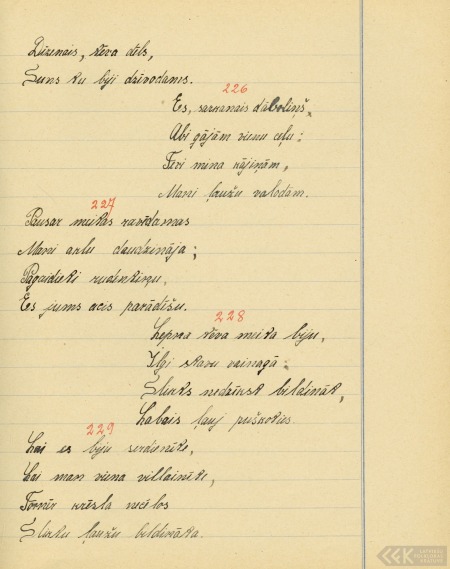 Lūzenais, tēva dēls,
Suns tu biji dzīvodams.
226
Es, sarkanais dāboliņš,
Abi gājām vienu ceļu:
Tevi mina kājiņām,
Mani ļaužu valodām.
227
Pausar meitas ravēdamas
Mani aklu daudzināja;
Pagaidiet rudentiņu,
Es jums acis parādīšu.
228
Lepna tēva meita biju,
Ilgi stāvu vainagā:
Slikts nedrīkst bildināt,
Labais ļauj puškoties.
229
Lai es biju serdienīte,
Lai man viena villainīte,
Tomēr krēsla necēlos
Sliktu ļaužu bildināta.